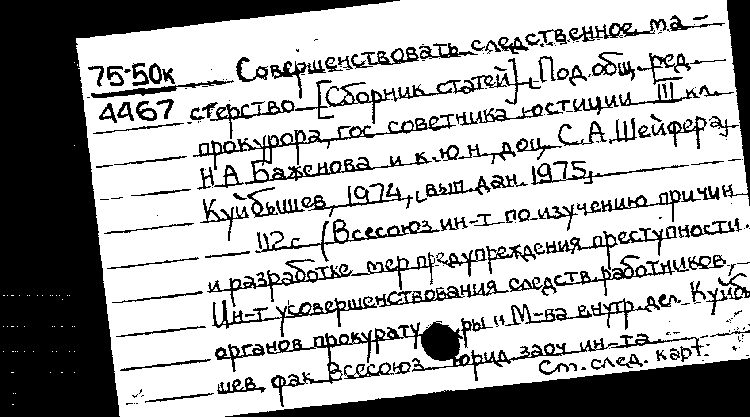 75-50к
4467
Совершенствовать следственное ма-
стерство [Сборник статей] [Под общ. ред.
прокурора, гос советника юстиции III кл.
Н А Баженова и к.ю.н., доц. С.А.Шейфера].
Куйбышев, 1974, [вып. дан. 1975].
112 с (Всесоюз ин-т по изучению причин
и разработке мер предупреждения преступности.
Ин-т усовершенствования следств. работников,
органов прокурату ры и М-ва внутр. дел. Куйбы
шев. фак Всесоюз. юрид. заоч ин-та.
См. след. карт.